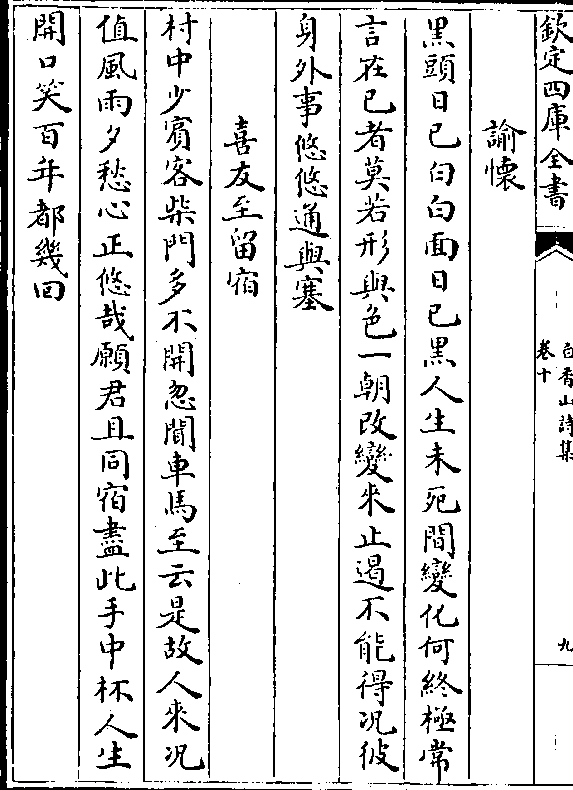 欽定四庫全書
白香山詩集
卷十
九
諭懷
黑頭日已白白面日已黑人生未死間變化何終極常
言在已者莫若形與色一朝改變來止遏不能得况彼
身外事悠悠通與塞
喜友至留宿
村中少賓客柴門多不開忽聞車馬至云是故人來况
值風雨夕愁心正悠哉願君且同宿盡此手中杯人生
開口笑百年都幾回